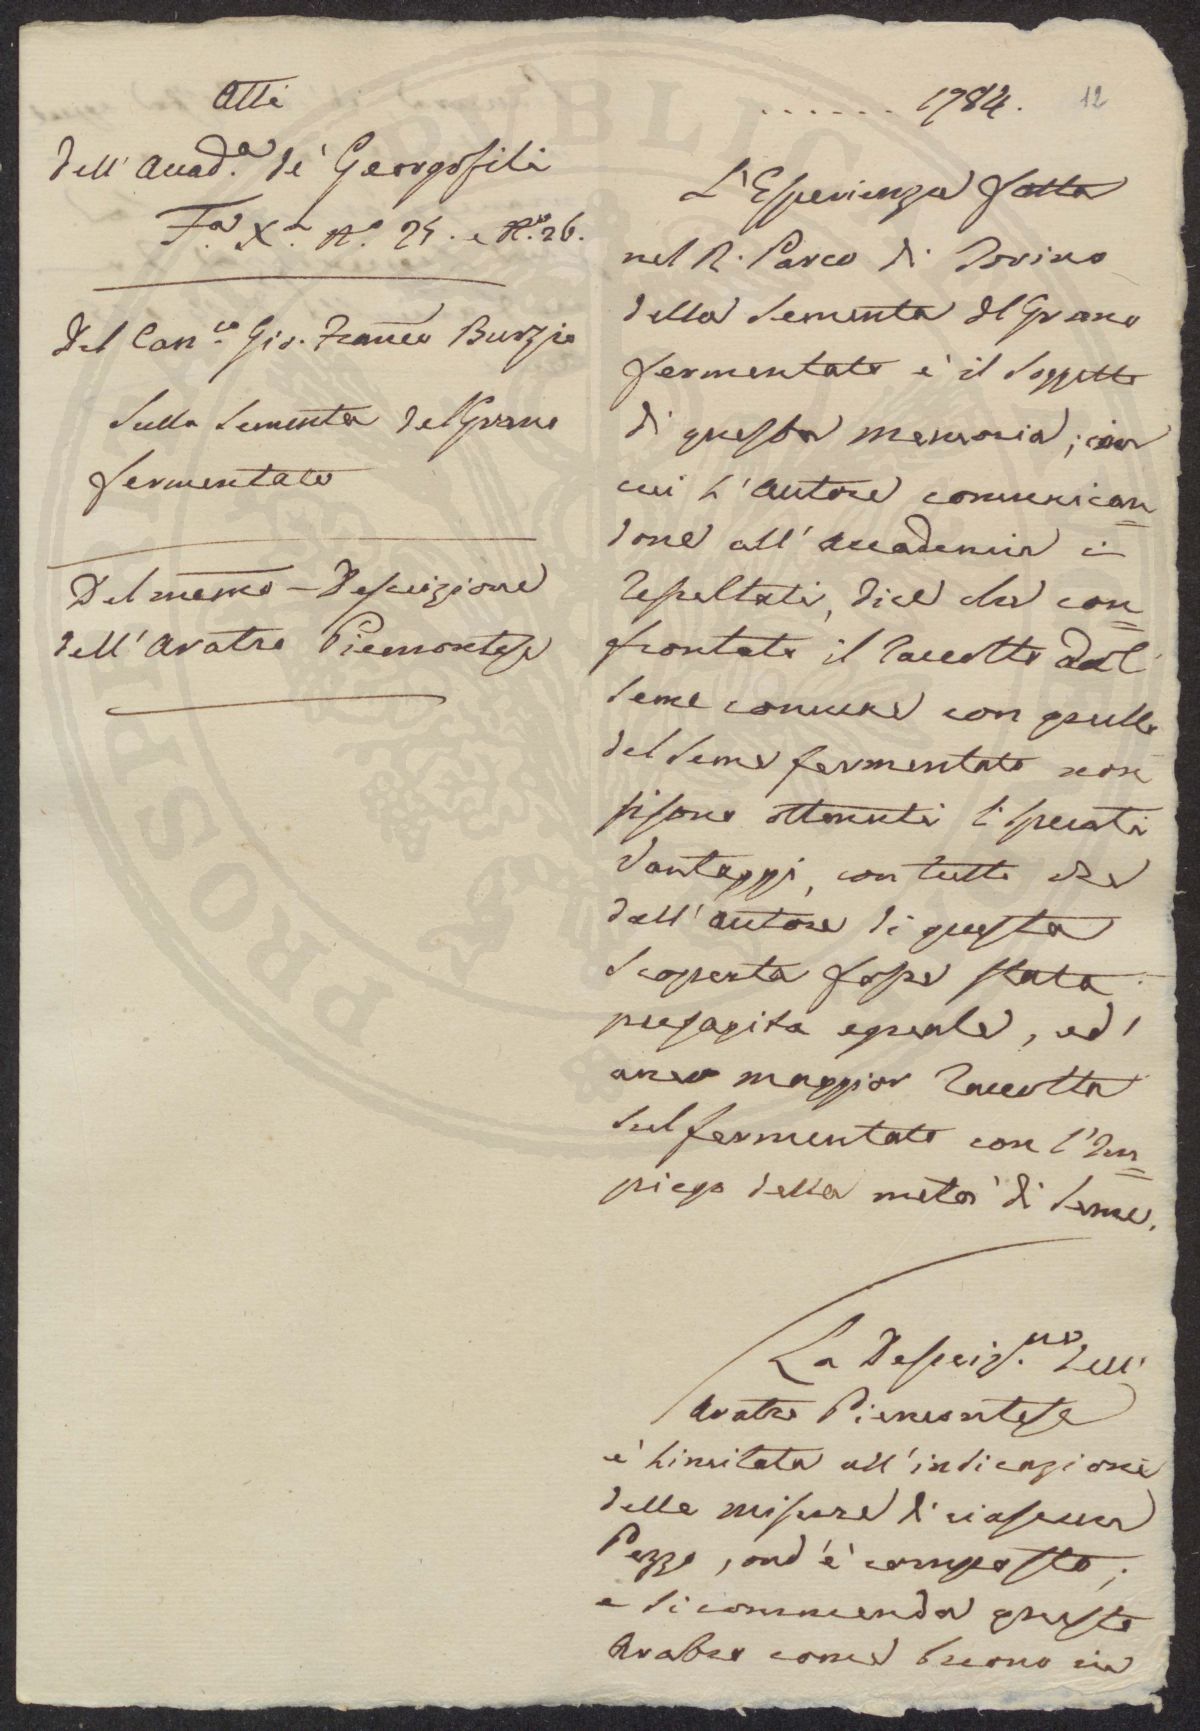 Atti
dell'Accad.a de' Georgofili
F.a X.a N.o 25. e N.o 26.
Del Can.co Gio. Franco Burzio
Sulla Sementa del Grano
fermentato
Del medmo – Descrizione
dell'Aratro Piemontese
...... 1784.
12
L'Esperienza fatta
nel R. Parco di Torino
della Sementa del Grano
fermentato è il soggetto
di questa memoria; in
cui l'Autore comunican=
done all'Accademia i
resultati, dice che con=
frontato il raccolto dal
seme comune con quello
del seme fermentato non
si sono ottenuti li sperati
vantaggi, con tutto che
dall'Autore di questa
scoperta fosse stata
presagita eguale, ed
anco maggior raccolta
sul fermentato con l'Im=
piego della metà di seme.
La Descriz.ne dell'
Aratro Piemontese
è limitata all'indicazione
delle misure di ciascun
Pezzo, ond'è composto;
e si commenda questo
Aratro come buono in
PVBLICAE
PROSPERITATI